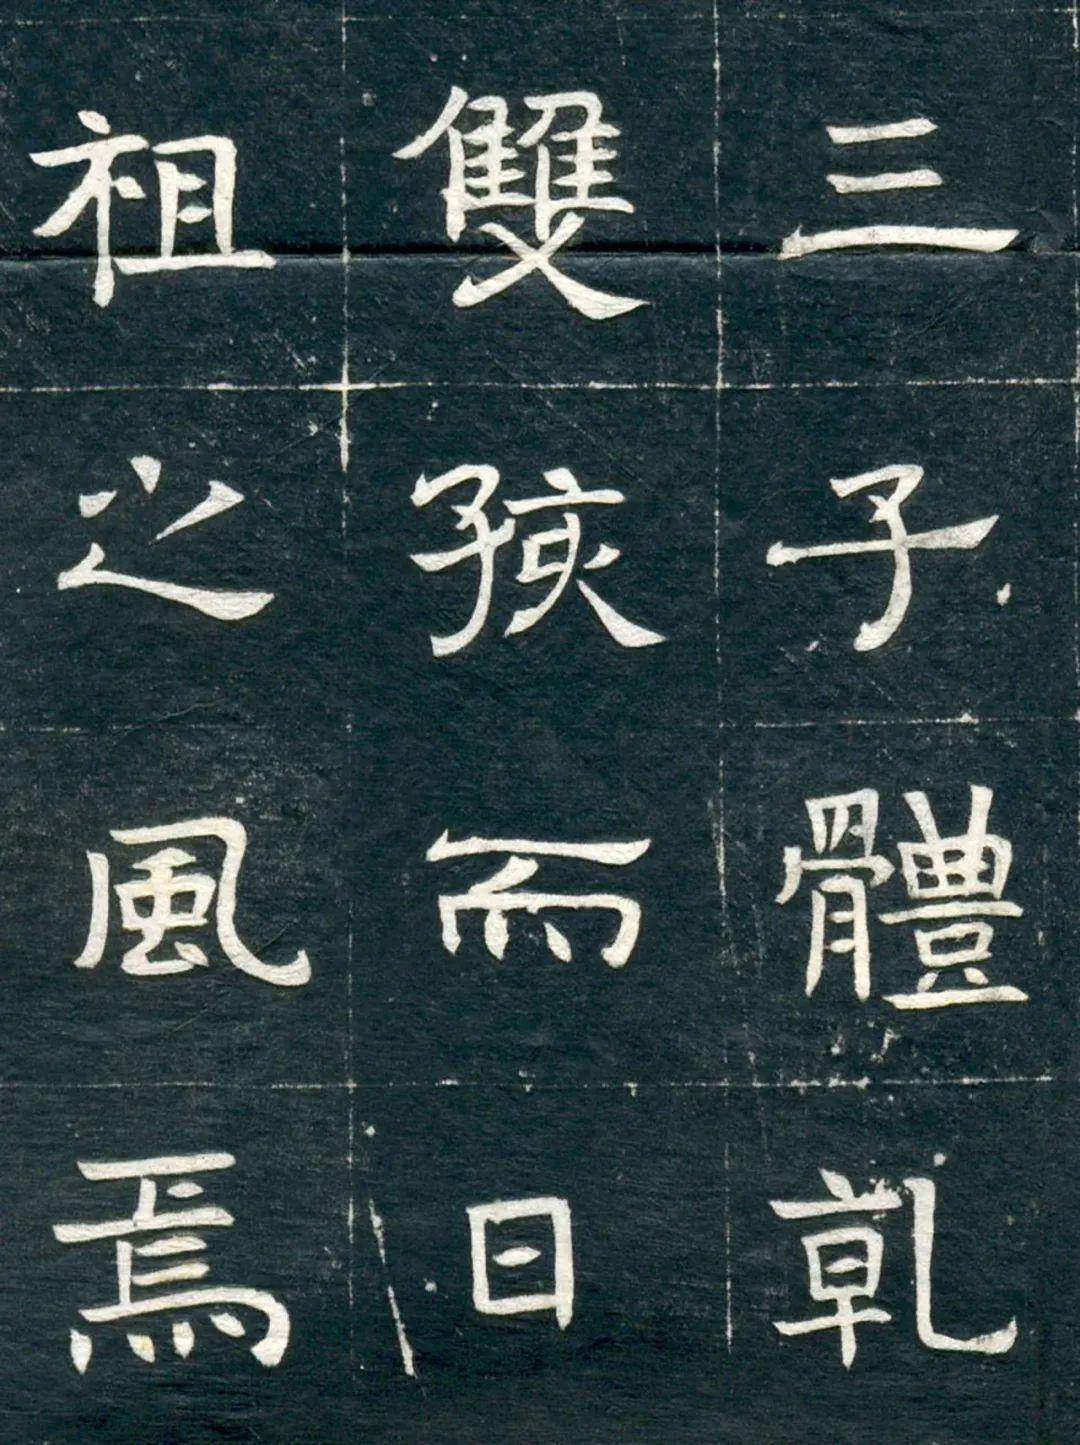 三子體乹
雙孩而日
祖之風焉